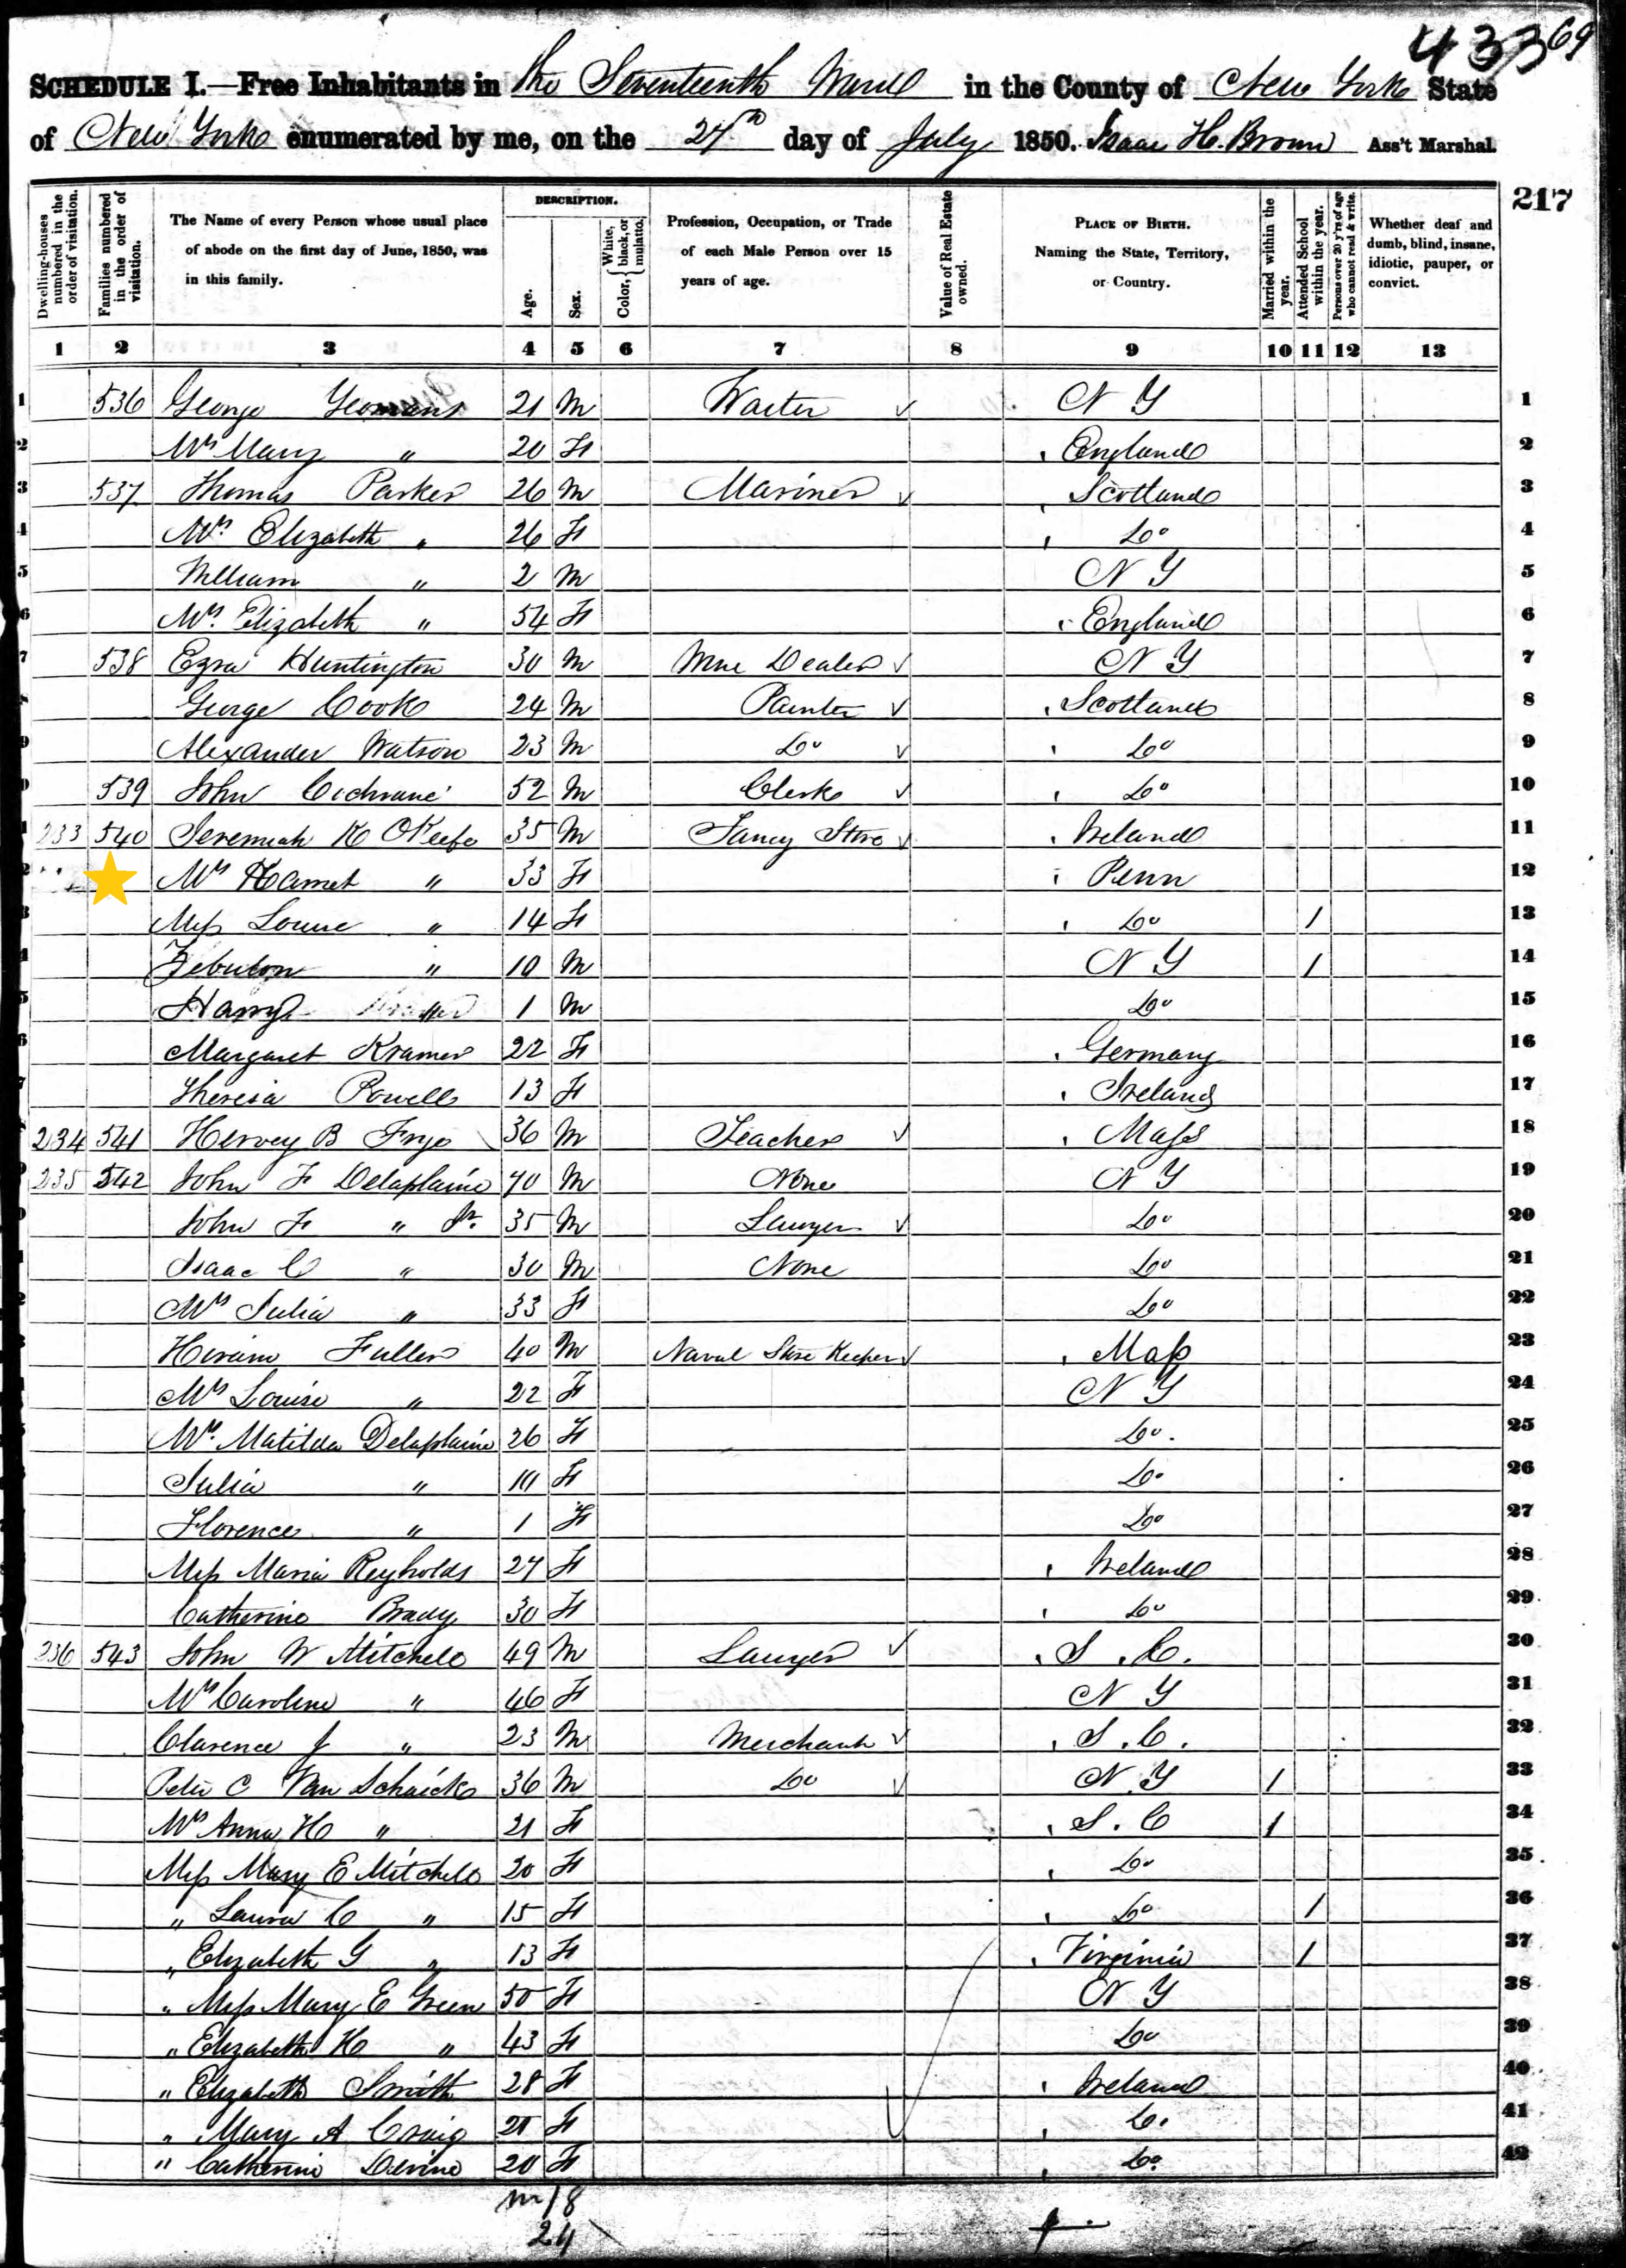 433 69
SCHEDULE I.—Free Inhabitants in The Seventeenth Ward in the County of New York State
of New York enumerated by me, on the 27th day of July 1850. Isaac H. Brown Ass't Marshal.
217
Dwelling-houses numbered in the order of visitation.
Families numbered in the order of visitation.
The Name of every Person whose usual place of abode on the first day of June, 1850, was in this family.
DESCRIPTION.
Age.
Sex.
Color, { White, black, or mulatto.
Profession, Occupation, or Trade of each Male Person over 15 years of age.
Value of Real Estate owned.
PLACE OF BIRTH. Naming the State, Territory, or Country.
Married within the year.
Attended School within the year.
Persons over 20 y'rs of age who cannot read & write.
Whether deaf and dumb, blind, insane, idiotic, pauper, or convict.
1 2 3 4 5 6 7 8 9 10 11 12 13
1 536 George Yeomans 21 M Waiter N Y 1
2 Mrs Mary " 20 F England 2
3 537 Thomas Parker 26 M Mariner Scotland 3
4 Mrs Elizabeth " 26 F Do 4
5 William " 2 M N Y 5
6 Mrs Elizabeth " 54 F England 6
7 538 Ezra Huntington 30 M Dealer N Y 7
George Cook 24 M Painter Scotland 8
9 Alexander Watson 23 M Do Do 9
539 John Cochrane 52 M Clerk Do 10
233 540 Jeremiah K OKeefe 35 M Fancy Store Ireland 11
Mrs Harriet " 33 F Penn 12
Miss Louise " 14 F Do 1 13
Zebulon " 10 M N Y 1 14
Harry " 1 M Do 15
Margaret Kramer 22 F Germany 16
Theresa Powell 13 F Ireland 17
234 541 Hervey B Frye 36 M Teacher Mass 18
235 542 John F Delaplaine 70 M None N Y 19
John F " Jr. 35 M Lawyer Do 20
Isaac C " 30 M None Do 21
Mrs Julia " 33 F Do 22
Hiram Fuller 40 M Naval Store Keeper Mass 23
Mrs Louise " 22 F N Y 24
Mrs. Matilda Delaplaine 26 F Do. 25
Julia " F Do 26
Florence " 1 F Do 27
Miss Maria Reynolds 27 F Ireland 28
Catherine Brady 30 F Do 29
236 543 John W Mitchell 49 M Lawyer S. C. 30
Mrs Caroline " 46 F N Y 31
Clarence J " 23 M Merchant S. C. 32
Peter C Van Schaick 36 M Do N. Y 1 33
Mrs Anna H " 21 F S. C 1 34
Miss Mary E Mitchell 20 F Do 35
" Laura C " 15 F Do 1 36
" Elizabeth G " 13 F Virginia 1 37
" Miss Mary E Green 50 F N Y 38
" Elizabeth H " 43 F Do 39
" Elizabeth Smith 28 F Ireland 40
" Mary A Craig F Do 41
" Catherine Devine 20 F Do 42
m 18
24